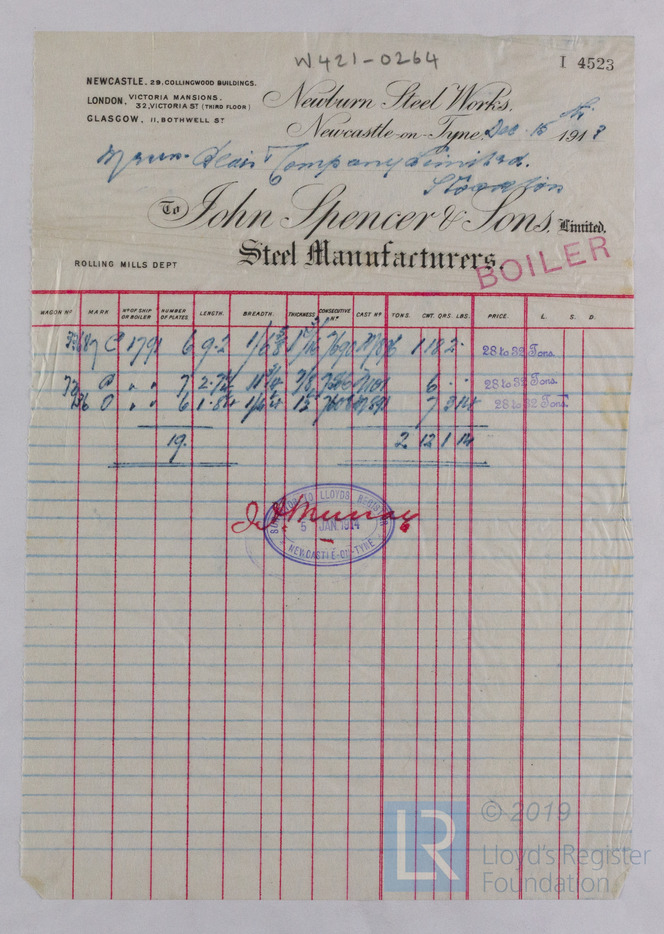 W421-0264
I 4523
NEWCASTLE. 29, COLLINGWOOD BUILDINGS.
LONDON. VICTORIA MANSIONS.
32, VICTORIA ST (THIRD FLOOR)
GLASGOW. 11, BOTHWELL ST
Newburn Steel Works.
Newcastle-on-Tyne, Dec. 15 1913
Messrs. Blair & Company Limited.
Stockton
To John Spencer & Sons, Limited.
Steel Manufacturers
BOILER
ROLLING MILLS DEPT
WAGON No MARK No OF SHIP OR BOILER NUMBER OF PLATES LENGTH. BREADTH. THICKNESS CONSECUTIVE No CAST No TONS. CNT. QRS. LBS. PRICE. L. S. D.
1791 6 9-2 1 18 2 - 28 to 32 Tons.
" " 7 6 - - 28 to 32 Tons.
" " 6 7 3 14 28 to 32 Tons.
19. 2 12 1 14
J. A. Murray
SURVEYOR TO LLOYDS REGISTER
5 JAN. 1914
NEWCASTLE-ON-TYNE
LR © 2019
Lloyd's Register
Foundation